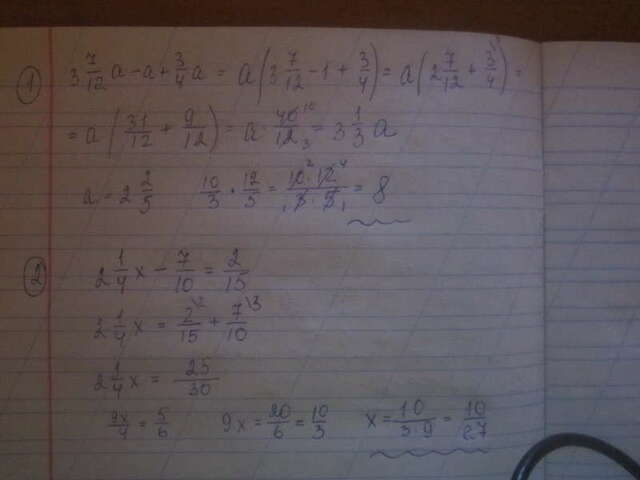 ①
3 7/12 a - a + 3/4 a = a(3 7/12 - 1 + 3/4) = a(2 7/12 + 3/4) =
= a(31/12 + 9/12) = a 40/12 = 3 1/3 a
a = 2 2/5 10/3 · 12/5 = 10·12/3·5 = 8
②
2 1/4 x - 7/10 = 2/15
2 1/4 x = 2/15 + 7/10
2 1/4 x = 25/30
9x/4 = 5/6 9x = 20/6 = 10/3 x = 10/3·9 = 10/27